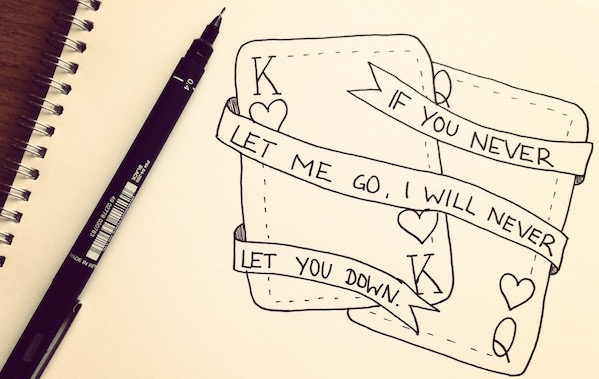 K
Q
IF YOU NEVER
LET ME GO, I WILL NEVER
LET YOU DOWN.
K
Q
0.4
BLACK